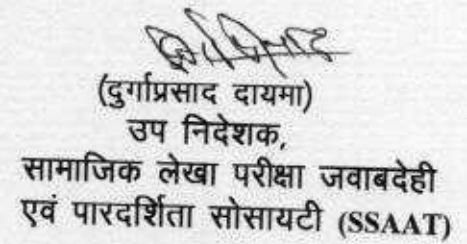 (दुर्गाप्रसाद दायमा)
उप निदेशक,
सामाजिक लेखा परीक्षा जवाबदेही
एवं पारदर्शिता सोसायटी (SSAAT)